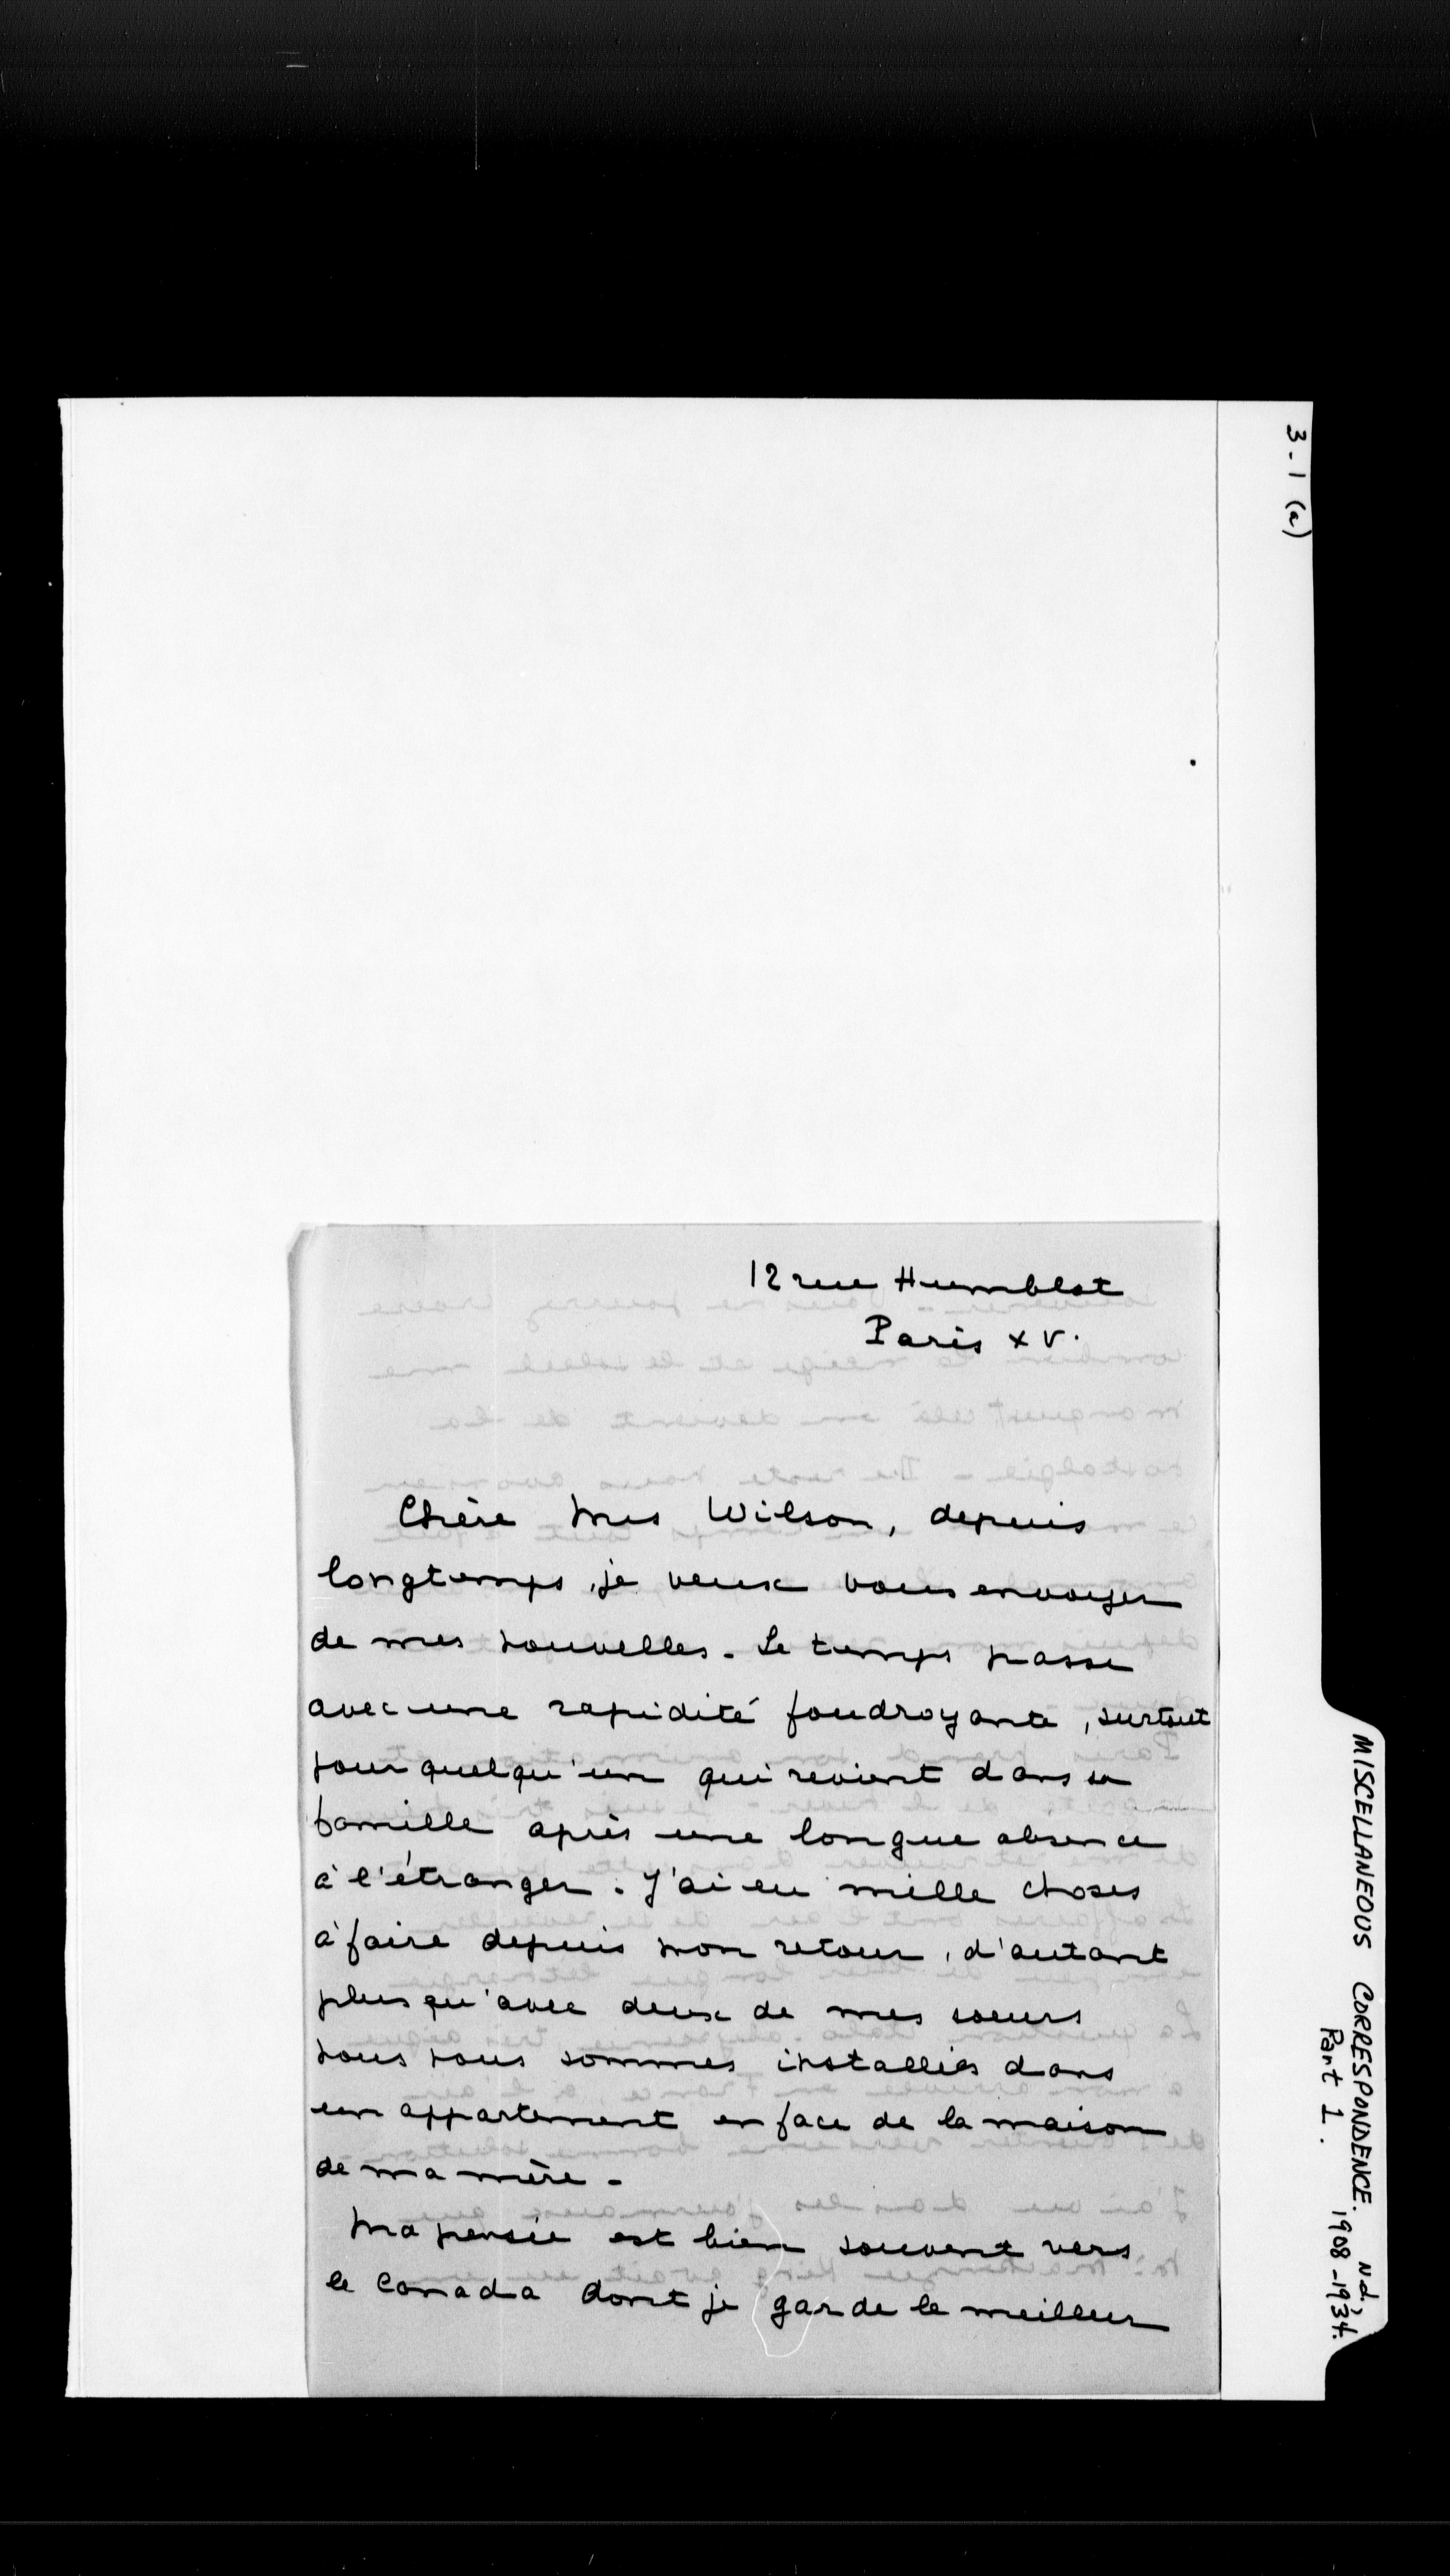 3-1 (a)
MISCELLANEOUS CORRESPONDENCE. N.d.,
Part 1. 1908-1934.
12 rue Humblot
Paris XV.
Chère Mrs Wilson, depuis
longtemps, je veux vous envoyer
de mes nouvelles. Le temps passe
avec une rapidité foudroyante, surtout
pour quelqu'un qui revient dans sa
famille après une longue absence
à l'étranger. J'ai eu mille choses
à faire depuis mon retour, d'autant
plus qu'avec deux de mes soeurs
nous nous sommes installées dans
un appartement en face de la maison
de ma mère.
Ma pensée est bien souvent vers
le Canada dont je garde le meilleur